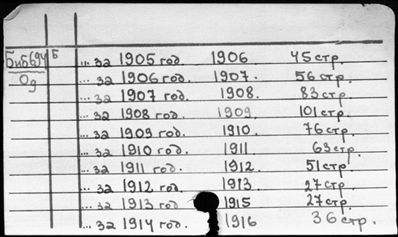 Биб(94)Б
Од
... за 1905 год. 1906. 45 стр.
... за 1906 год. 1907. 56 стр.
... за 1907 год. 1908. 83 стр.
... за 1908 год. 1909. 101 стр.
... за 1909 год. 1910. 76 стр.
... за 1910 год. 1911 63 стр.
... за 1911 год. 1912. 51 стр.
... за 1912 год. 1913 27 стр.
... за 1913 год. 1915 27 стр.
... за 1914 год. 1916 36 стр.